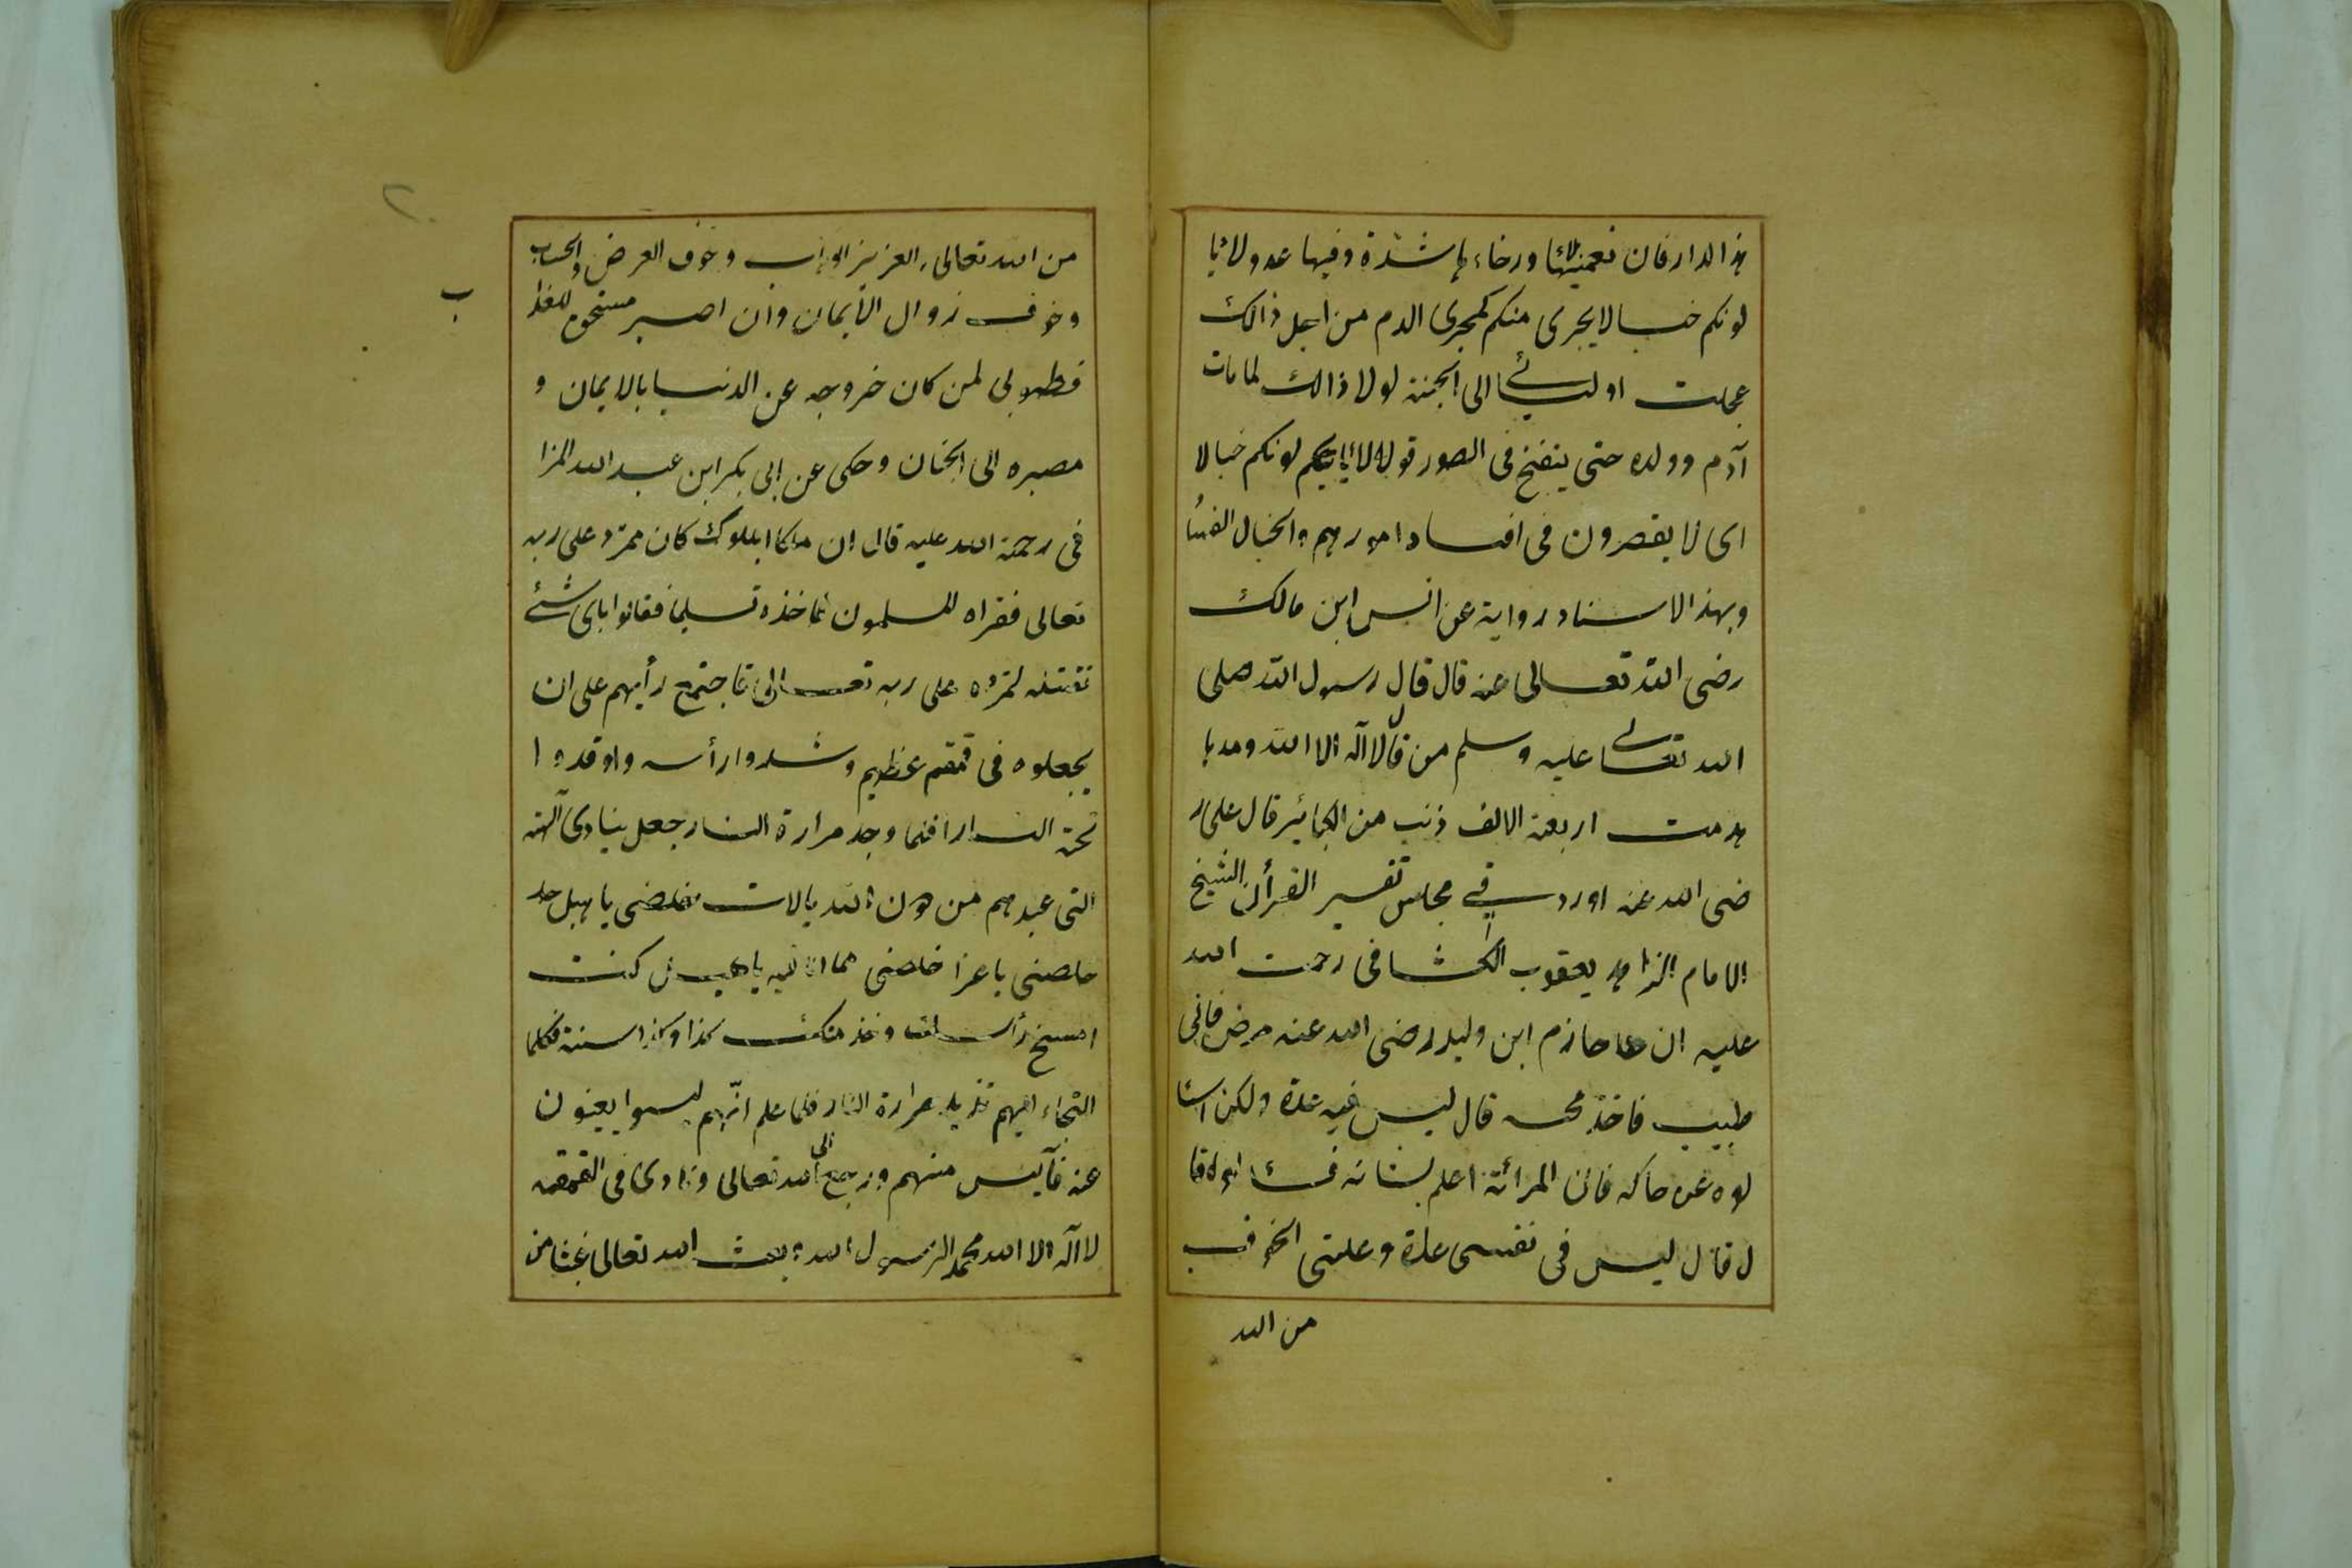 هذا الدار فان نعمتها ورخاء ها شدة وفيها عدو لا يا
لونكم خبالا يجرى منكم كمجرى الدم من اجل ذالك
عجلت اوليائے الى الجنة لولا ذالك لما مات
آدم وولده حتى ينفخ فى الصور قوله لا ياليكم لونكم خبالا
اى لا يقصرون فى افساد امورهم والخبال الفسا
وبهذا الاسناد رواية عن انس ابن مالك
رضى الله تعالى عنه قال قال رسول الله صلى
الله تعالے عليه وسلم من قال لا اله الا الله ومدها
هدمت اربعة الالف ذنب من الكبائر قال على ر
ضى الله عنه اورد فے مجلس تفسير القرأن الشيخ
الامام الزاهد يعقوب الكشافى رحمت الله
عليه ان حازم ابن وليد رضى الله عنه مرض فاتى
طبيب فاخذ محسه قال ليس فيه علة ولكن اسئا
لوه عن حاله فان المرائة اعلم بشانه
ل قال ليس فى نفسى علة وعلتى الخوف
من الله
من الله تعالى العزيز الوهاب وخوف العرض والحساب
وخوف زوال الايمان وان اصير مستحق للعذا
ب
فطوبى لمن كان خروجه عن الدنيا بالايمان و
مصيره الى الجنان وحكى عن ابى بكر ابن عبد الله المزا
نى رحمة الله عليه قال ان ملكا الملوك كان تمرد على ربه
تعالى فغزاه المسلمون فاخذه تسليما فقالوا باى شئے
نقتله لتمرده على ربه تعالى فاجتمع رأيهم على ان
يجعلوه فى قمقم عظيم وشدوا رأسه واوقدوا
تحته النار فلما وجد مرارة النار جعل ينادى آلهته
التى عبدهم من دون الله يالات خلصنى يا هبل
خلصنى يا عزا خلصنى مما انا فيه يا هبل كنت
امسح رأسك وخد منك كذا وكذا سنة فكلما
التجاء اليهم تزيد حرارة النار فلما علم انهم ليسوا يغيثون
عنه فآيس منهم ورجع الى الله تعالى ونادى فى القمقمه
لا اله الا الله محمد الرسول الله بعث الله تعالى غيثا من